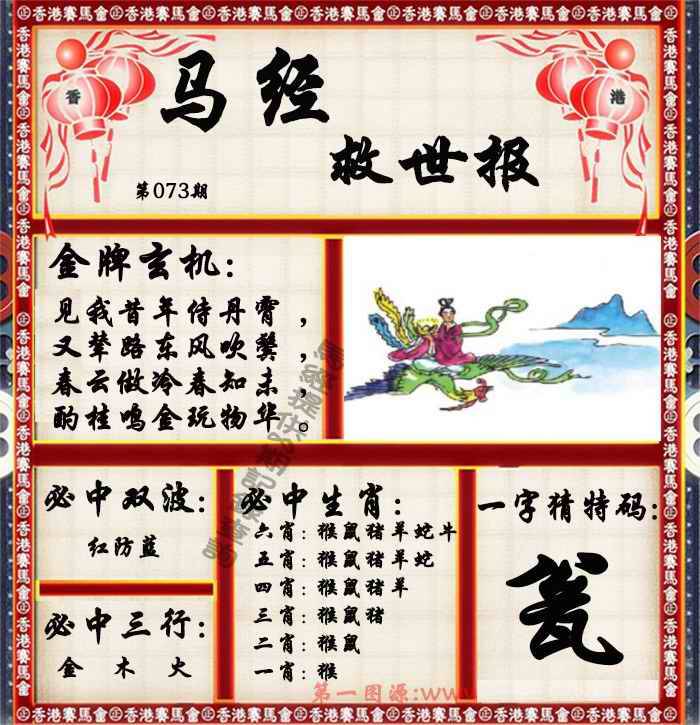 香港賽馬會
香
港
马经
救世报
第073期
金牌玄机：
见我昔年侍丹霄，
又辇路东风吹鬓，
春云做冷春知未，
酌桂鸣金玩物华。
必中双波：
红防蓝
必中三行：
金 木 火
必中生肖：
六肖：猴鼠猪羊蛇牛
五肖：猴鼠猪羊蛇
四肖：猴鼠猪羊
三肖：猴鼠猪
二肖：猴鼠
一肖：猴
一字猜特码：
瓮
第一图源：www